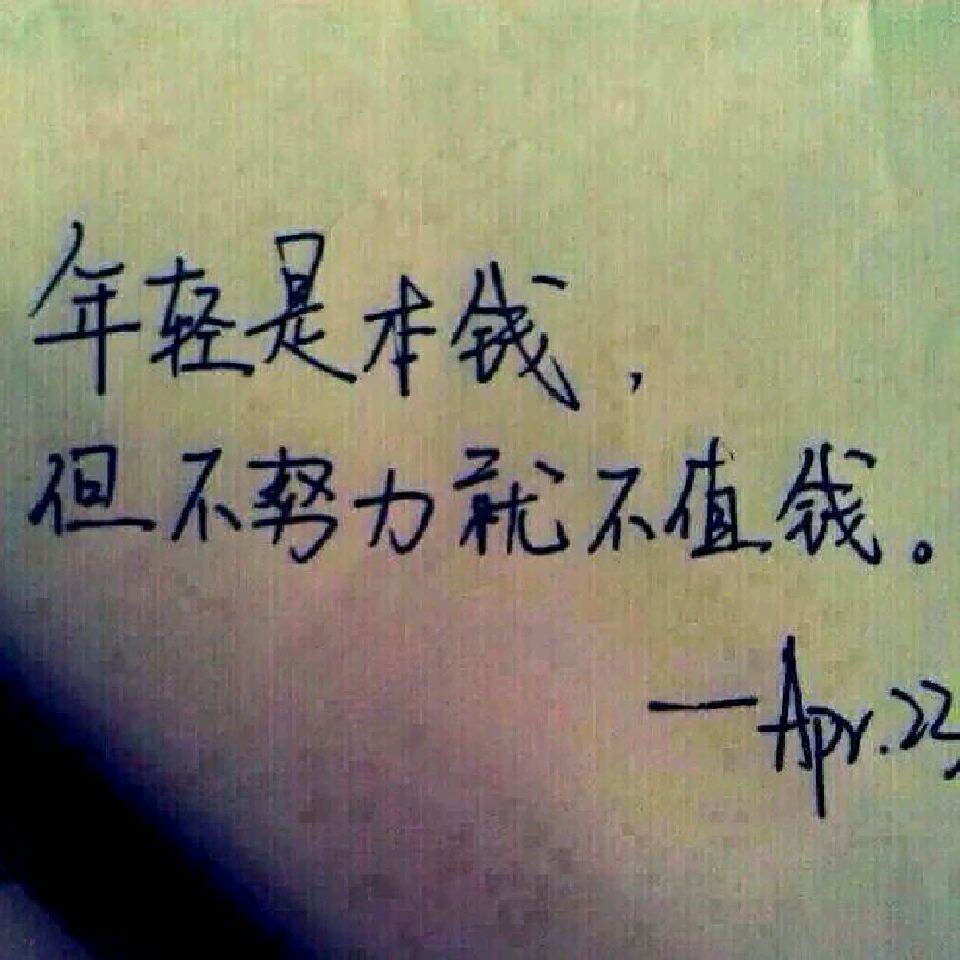 年轻是本钱，
但不努力就不值钱。
—Apr.23